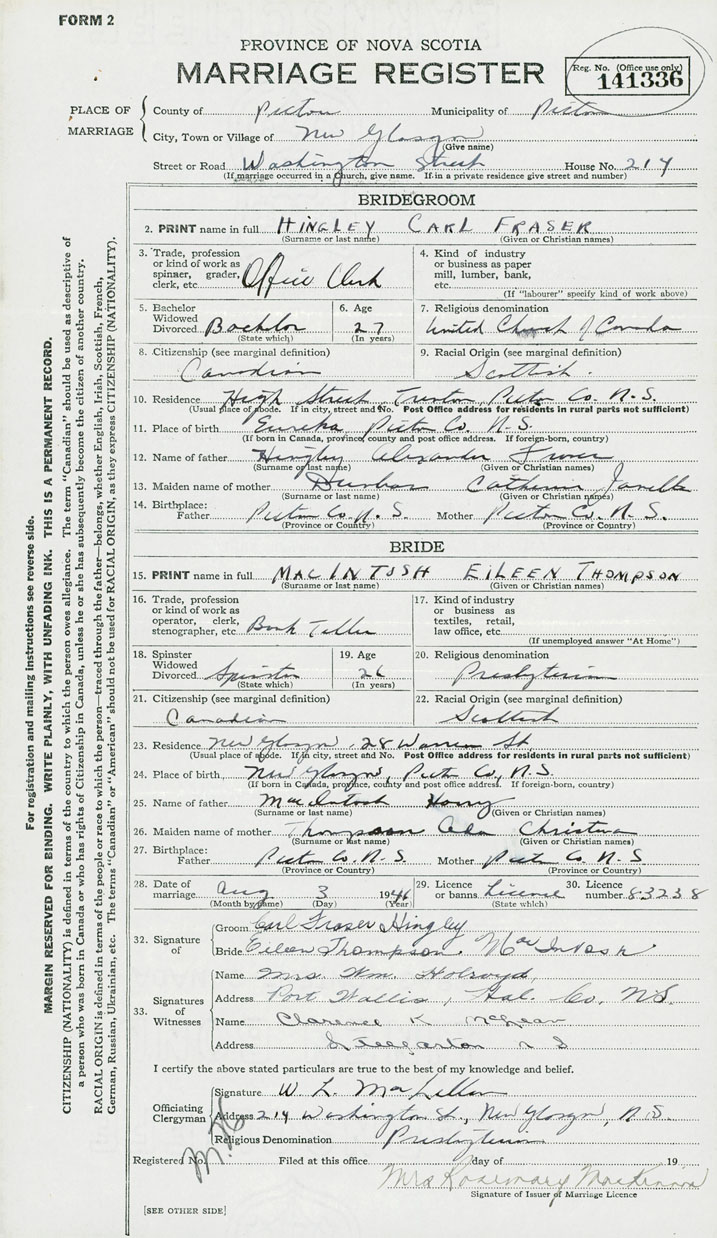 FORM 2
PROVINCE OF NOVA SCOTIA
MARRIAGE REGISTER
Reg. No. (Office use only)
141336
PLACE OF MARRIAGE
County of Pictou Municipality of Pictou
City, Town or Village of New Glasgow
(Give name)
Street or Road Washington Street House No. 214
(If marriage occurred in a church, give name. If in a private residence give street and number)
BRIDEGROOM
2. PRINT name in full HINGLEY CARL FRASER
(Surname or last name) (Given or Christian names)
3. Trade, profession or kind of work as spinner, grader, clerk, etc. Office Clerk
4. Kind of industry or business as paper mill, lumber, bank, etc.
(If "labourer" specify kind of work above)
5. Bachelor Widowed Divorced Bachelor
(State which)
6. Age 27
(In years)
7. Religious denomination
United Church of Canada
8. Citizenship (see marginal definition)
Canadian
9. Racial Origin (see marginal definition)
Scottish.
10. Residence High Street, Trenton, Pictou Co. N.S.
(Usual place of abode. If in city, street and No. Post Office address for residents in rural parts not sufficient)
11. Place of birth Eureka Pictou Co. N.S.
(If born in Canada, province, county and post office address. If foreign-born, country)
12. Name of father Hingley Alexander Fraser
(Surname or last name) (Given or Christian names)
13. Maiden name of mother Dunbar Catherine
(Surname or last name) (Given or Christian names)
14. Birthplace: Father Pictou Co. N.S. Mother Pictou Co. N.S.
(Province or Country) (Province or Country)
BRIDE
15. PRINT name in full MACINTOSH EILEEN THOMPSON
(Surname or last name) (Given or Christian names)
16. Trade, profession or kind of work as operator, clerk, stenographer, etc. Bank Teller
17. Kind of industry or business as textiles, retail, law office, etc.
(If unemployed answer "At Home")
18. Spinster Widowed Divorced Spinster
(State which)
19. Age 26
(In years)
20. Religious denomination
Presbyterian
21. Citizenship (see marginal definition)
Canadian
22. Racial Origin (see marginal definition)
Scottish
23. Residence New Glasgow, 28 Warren St.
(Usual place of abode. If in city, street and No. Post Office address for residents in rural parts not sufficient)
24. Place of birth New Glasgow, Pictou Co, N.S.
(If born in Canada, province, county and post office address. If foreign-born, country)
25. Name of father MacIntosh Harry
(Surname or last name) (Given or Christian names)
26. Maiden name of mother Thompson Christina
(Surname or last name) (Given or Christian names)
27. Birthplace: Father Pictou Co. N.S. Mother Pictou Co. N.S.
(Province or Country) (Province or Country)
28. Date of marriage Aug 3 1946
(Month by name) (Day) (Year)
29. Licence or banns License
(State which)
30. Licence number 83238
32. Signature of
Groom Carl Fraser Hingley
Bride Eileen Thompson MacIntosh
33. Signatures of Witnesses
Name Mrs. Wm. Holroyd,
Address Port Wallis, Hal. Co. N.S.
Name Clarence K
Address Stellarton N S
I certify the above stated particulars are true to the best of my knowledge and belief.
Officiating Clergyman
Signature W. L. MacLellan
Address 214 Washington St., New Glasgow, N.S.
Religious Denomination Presbyterian
Registered No. Filed at this office day of 19
Mrs Rosemary MacKinnon
Signature of Issuer of Marriage Licence
[SEE OTHER SIDE]
For registration and mailing instructions see reverse side.
MARGIN RESERVED FOR BINDING. WRITE PLAINLY, WITH UNFADING INK. THIS IS A PERMANENT RECORD.
CITIZENSHIP (NATIONALITY) is defined in terms of the country to which the person owes allegiance. The term "Canadian" should be used as descriptive of
a person who was born in Canada or who has rights of Citizenship in Canada, unless he or she has subsequently become the citizen of another country.
RACIAL ORIGIN is defined in terms of the people or race to which the person—traced through the father—belongs, whether English, Irish, Scottish, French,
German, Russian, Ukrainian, etc. The terms "Canadian" or "American" should not be used for RACIAL ORIGIN, as they express CITIZENSHIP (NATIONALITY).